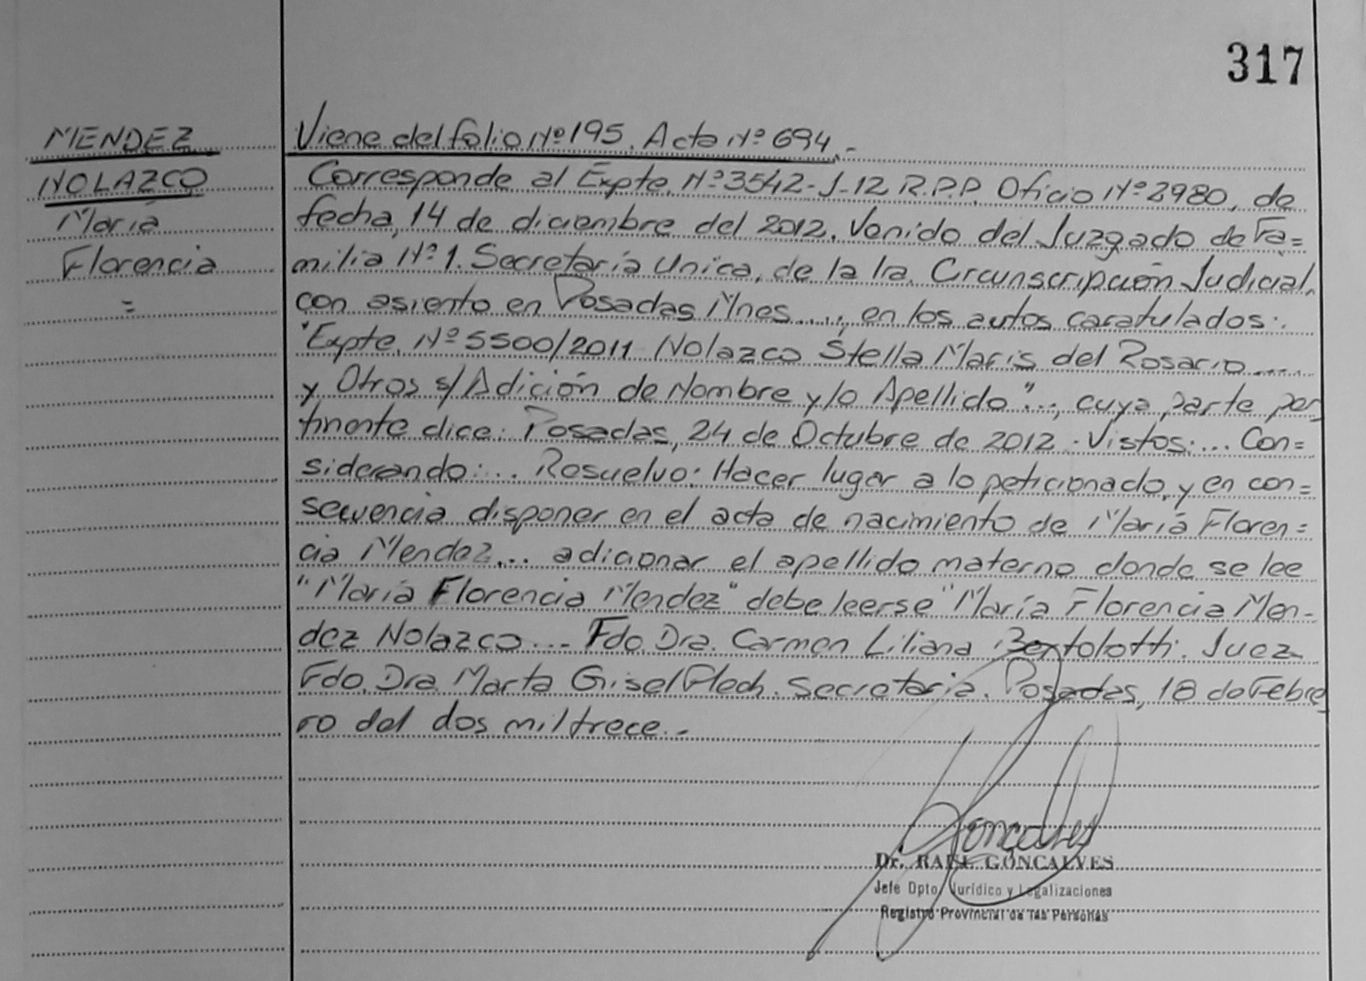 317
MENDEZ
NOLAZCO
María
Florencia
=
Viene del folio Nº 195. Acta Nº 694.-
Corresponde al Expte. Nº 3542-J-12 R.P.P. Oficio Nº 2980, de
fecha, 14 de diciembre del 2012. Venido del Juzgado de Fa=
milia Nº 1. Secretaría Unica, de la 1ra. Circunscripción Judicial,
con asiento en Posadas Mnes...., en los autos caratulados:.
"Expte. Nº 5500/2011 Nolazco Stella Maris del Rosario.....
y Otros s/ Adición de Nombre y/o Apellido"..., cuya parte per
tinente dice: Posadas, 24 de Octubre de 2012. Vistos:... Con=
siderando:... Resuelvo: Hacer lugar a lo peticionado, y en con=
secuencia disponer en el acta de nacimiento de María Floren=
cia Mendez... adicionar el apellido materno donde se lee
"María Florencia Mendez" debe leerse "María Florencia Men-
dez Nolazco... Fdo. Dra. Carmen Liliana Bertolotti. Juez
Fdo. Dra. Marta Gisel Plech. Secretaria. Posadas, 18 de Febre
ro del dos mil trece.-
Dr. RAUL GONCALVES
Jefe Dpto. Jurídico y Legalizaciones
Registro Provincial de las Personas